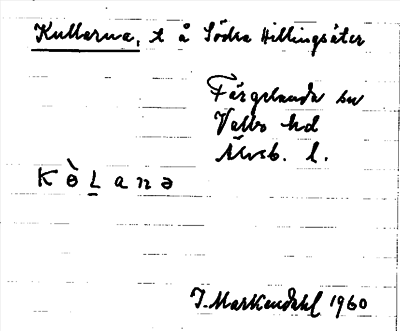 Kullarna, t å Södra Hillingsäter
Färgelanda sn
Valbo hd
Älvsb. l.
K ò̵ L a n ə
I. Markendahl 1960